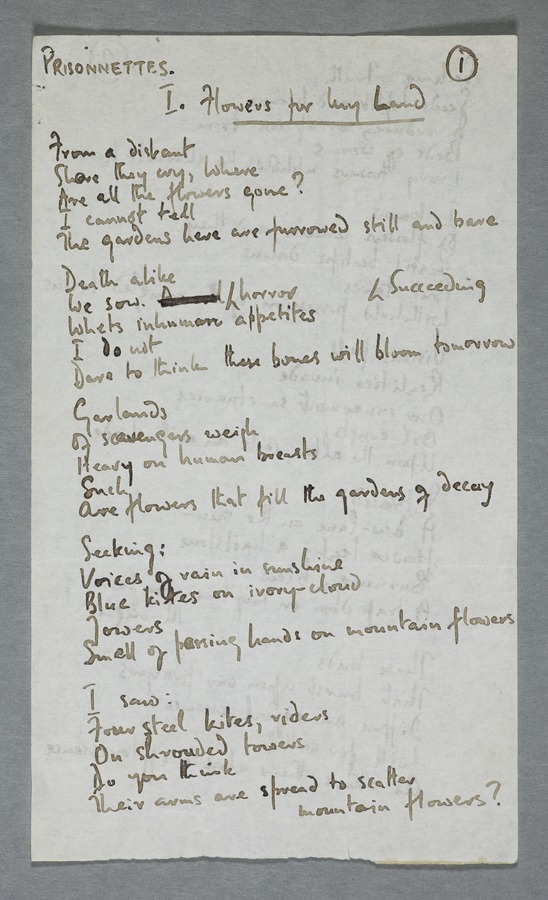 PRISONNETTES.
1
I. Flowers for my Land
From a distant
Shore they cry, Where
Are all the flowers gone?
I cannot tell
The gardens here are furrowed still and bare
Death alike
We sow. /horror
Succeeding
Whets inhuman appetites
I do not
Dare to think these bones will bloom tomorrow
Garlands
of scavengers weigh
Heavy on human breasts
Such
Are flowers that fill the gardens of decay
Seeking:
Voices of rain in sunshine
Blue kites on ivory-cloud
Towers
Smell of passing hands on mountain flowers
I saw:
Four steel kites, riders
On shrouded towers
Do you think
Their arms are spread to scatter
mountain flowers?